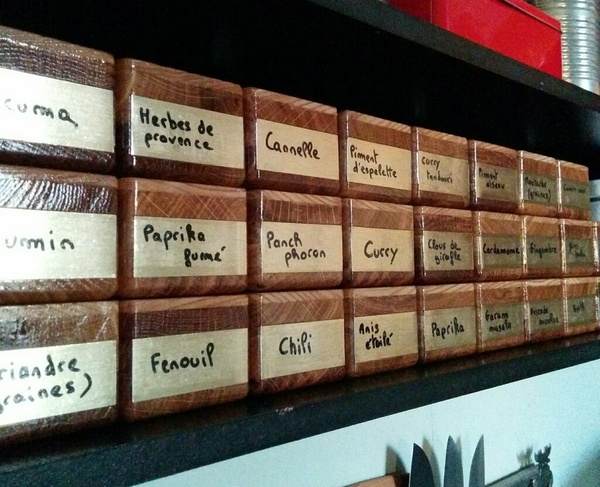 curma
Herbes de
provence
Cannelle
Piment
d'espelette
curry
tandoori
Piment
oiseau
Moutarde
(graines)
umin
Paprika
fumé
Panch
phoron
Curry
Clous de
girofle
Cardamome
Gingembre
riandre
raines)
Fenouil
Chili
Anis
étoilé
Paprika
Garam
masala